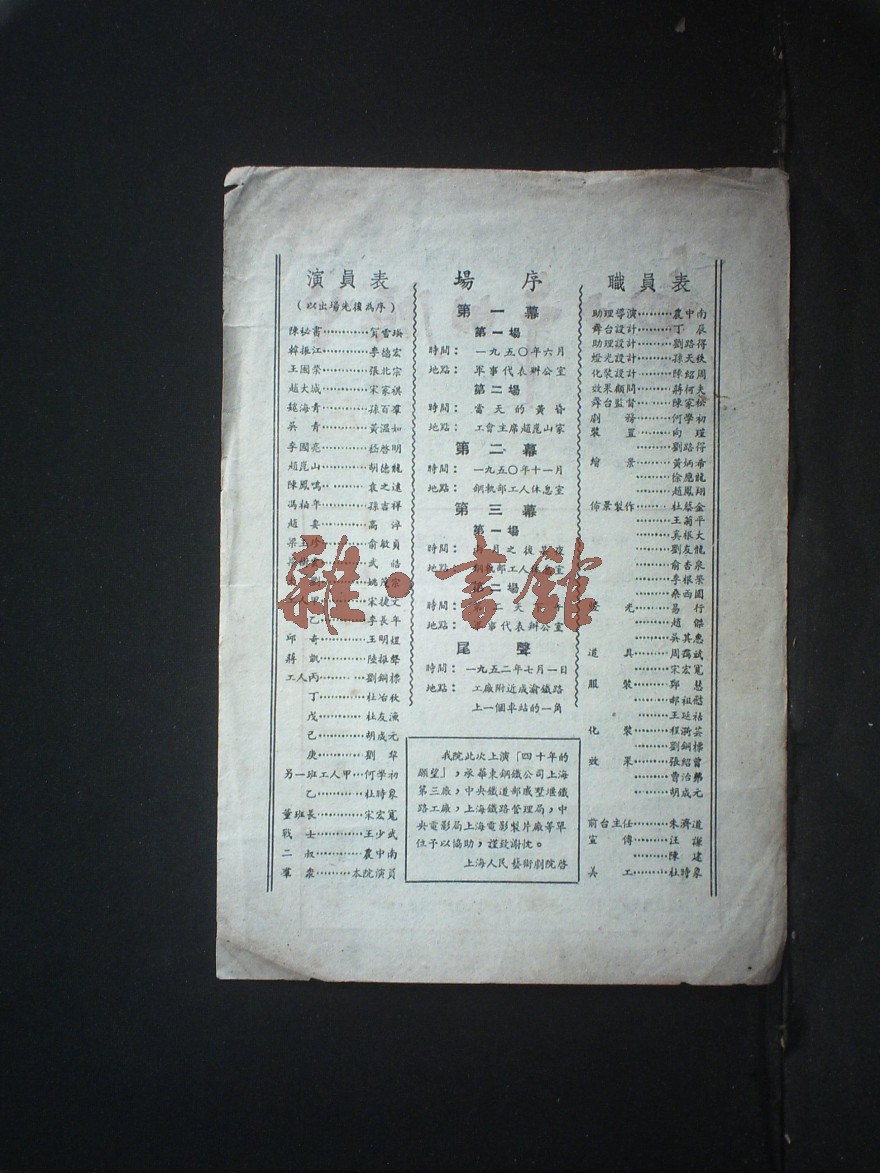 演員表
(以出場先後為序)
陳秘書············賀雪瑛
韓振江············李德宏
王國榮············張北宗
趙大城············宋家祺
魏海青············孫百羣
英青············黃溫如
李國亮············嵇啓明
趙崑山············胡德龍
陳鳳鳴············袁之遠
馮柏年············孫吉祥
趙妻············高淬
梁玉珍············俞敏貞
武皓
劉············姚茂宗
工人甲············宋捷文
乙············李長年
邱奇············王明煜
蔣凱············陸維聲
工人丙············劉銅標
丁············杜冶秋
戊············杜友漁
己············胡成元
庚············劉華
另一班工人甲··何學初
乙············杜時象
董班長············宋宏寬
戰士············王少武
二叔············農中南
羣衆············本院演員
場序
第一幕
第一場
時間： 一九五〇年六月
地點： 軍事代表辦公室
第二場
時間： 當天的黃昏
地點： 工會主席趙崑山家
第二幕
時間： 一九五〇年十一月
地點： 鋼軌部工人休息室
第三幕
第一場
時間： 兩月之後
地點： 鋼軌部工人休息室
第二場
時間： 第二天
地點： 軍事代表辦公室
尾聲
時間： 一九五二年七月一日
地點： 工廠附近成渝鐵路
上一個車站的一角
我院此次上演「四十年的
願望」，承華東鋼鐵公司上海
第三廠，中央鐵道部戚墅堰鐵
路工廠，上海鐵路管理局，中
央電影局上海電影製片廠等單
位予以協助，謹致謝忱。
上海人民藝術劇院啓
職員表
助理導演········農中南
舞台設計········丁辰
助理設計········劉路得
燈光設計········孫天秩
化裝設計········陳紹周
效果顧問········蔣柯夫
舞台監督········陳家松
劇務········何學初
裝置········向瑾
········劉路得
繪景········黃炳希
········徐應龍
········趙鳳翔
佈景製作········杜蔡金
········王菊平
········奚根大
········劉友龍
········俞杏泉
········李根榮
········桑西園
燈光········易行
········趙傑
········吳其惠
道具········周靄斌
········宋宏寬
服裝········鄭慧
········郝祖慰
········王延祜
化裝········程漪芸
········劉銅標
效果········張紹曾
········曹治弗
········胡成元
前台主任········朱濟道
宣傳········汪謙
········陳建
美工········杜時象
雜·書館